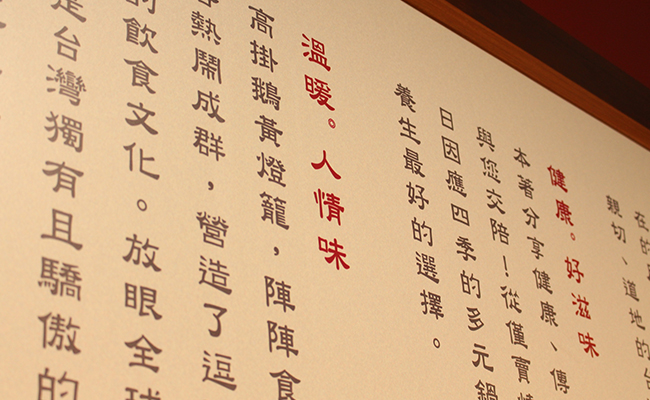 在的
親切、道地的台
健康。好滋味
本著分享健康、傳
與您交陪！從僅賣
日因應四季的多元鍋
養生最好的選擇。
溫暖。人情味
高掛鵝黃燈籠，陣陣食
熱鬧成群，營造了逗
的飲食文化。放眼全球
是台灣獨有且驕傲的